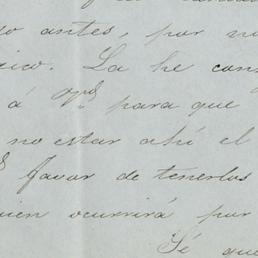 o antes, por
ico. La he con
á op.s para que
no estar ahí el
favor de tenerlos
uien ocurrirá por
Sé que